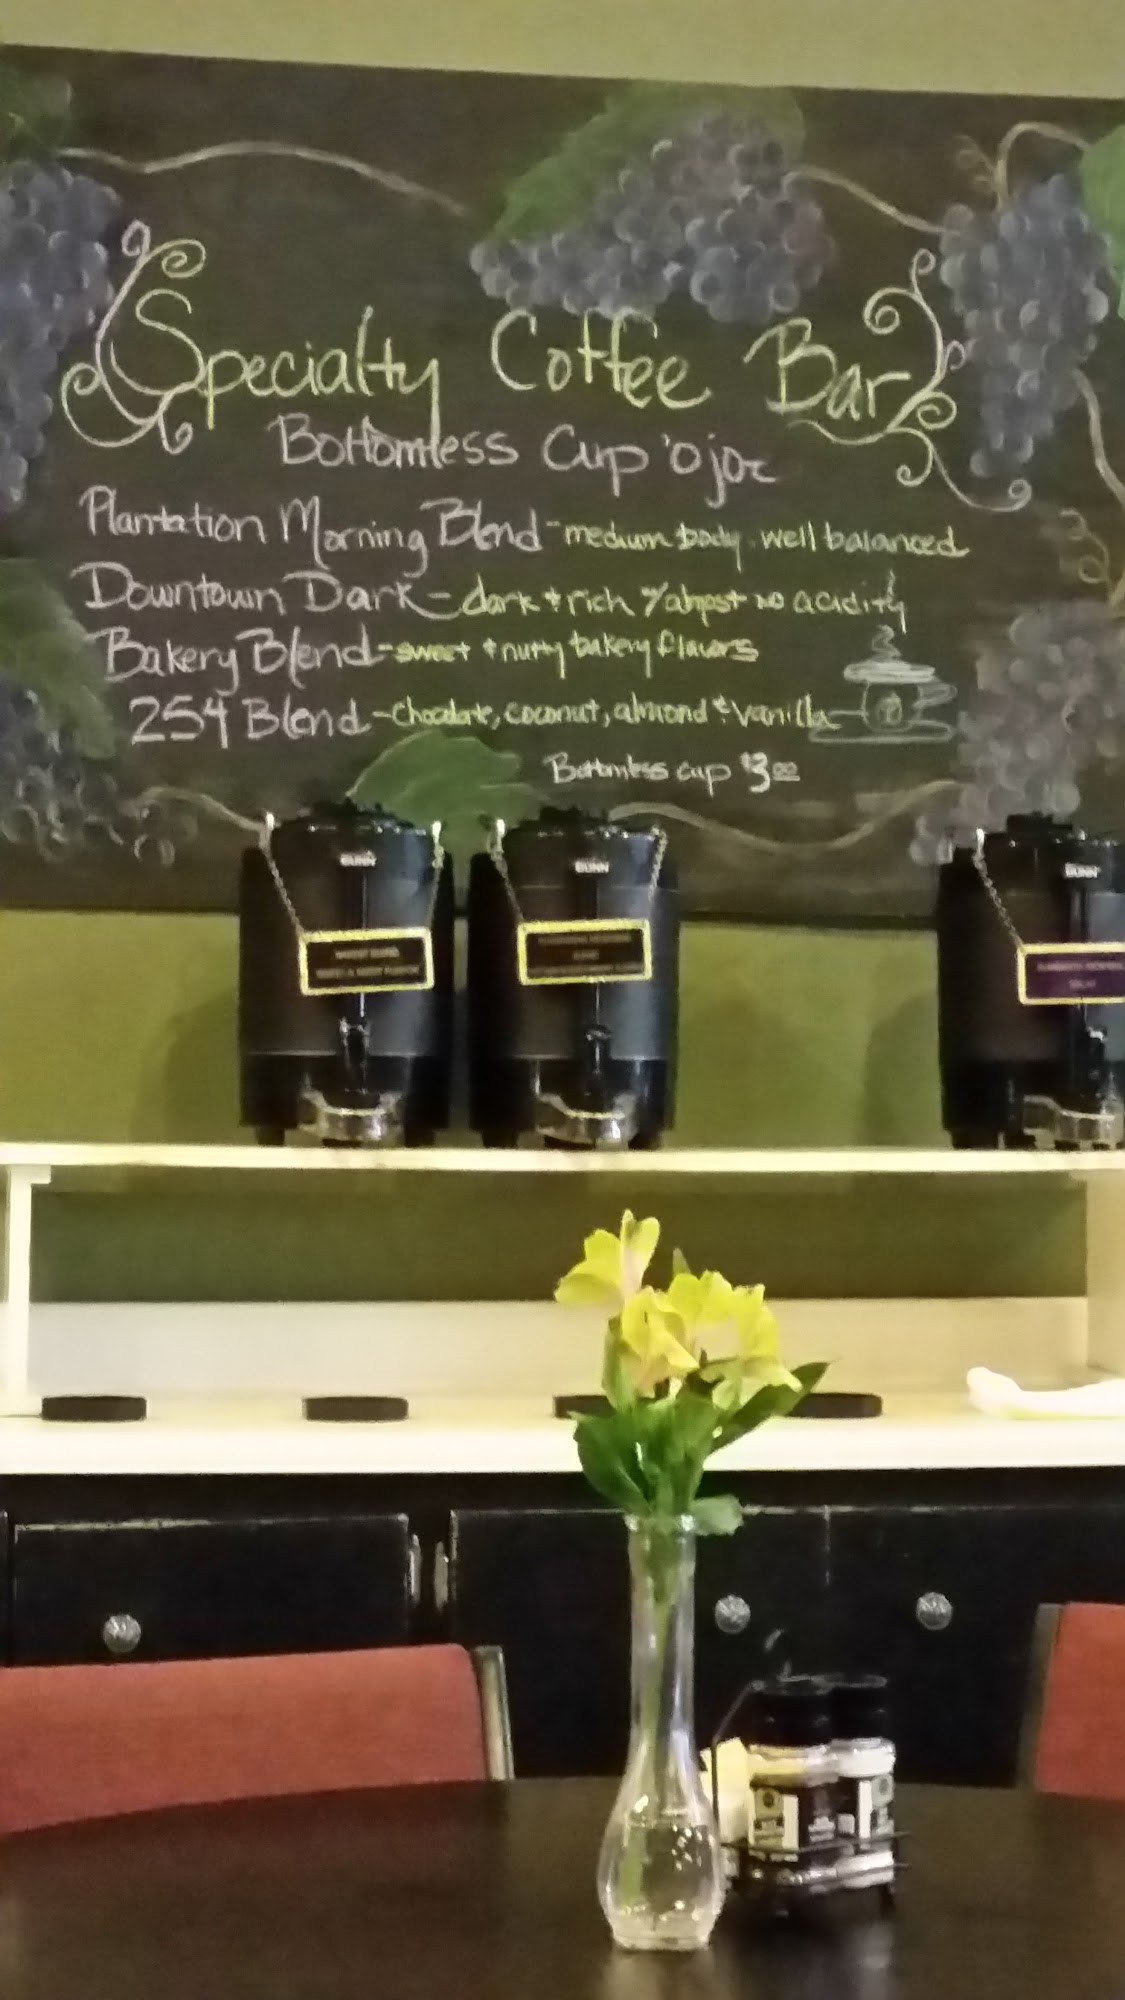 Specialty Coffee Bar
Bottomless Cup 'o joe
Plantation Morning Blend - medium body. well balanced
Downtown Dark - dark + rich w/ almost no acidity
Bakery Blend - sweet + nutty bakery flavors
254 Blend - chocolate, coconut, almond + vanilla
Bottomless cup $3.00
BUNN
BUNN
BUNN